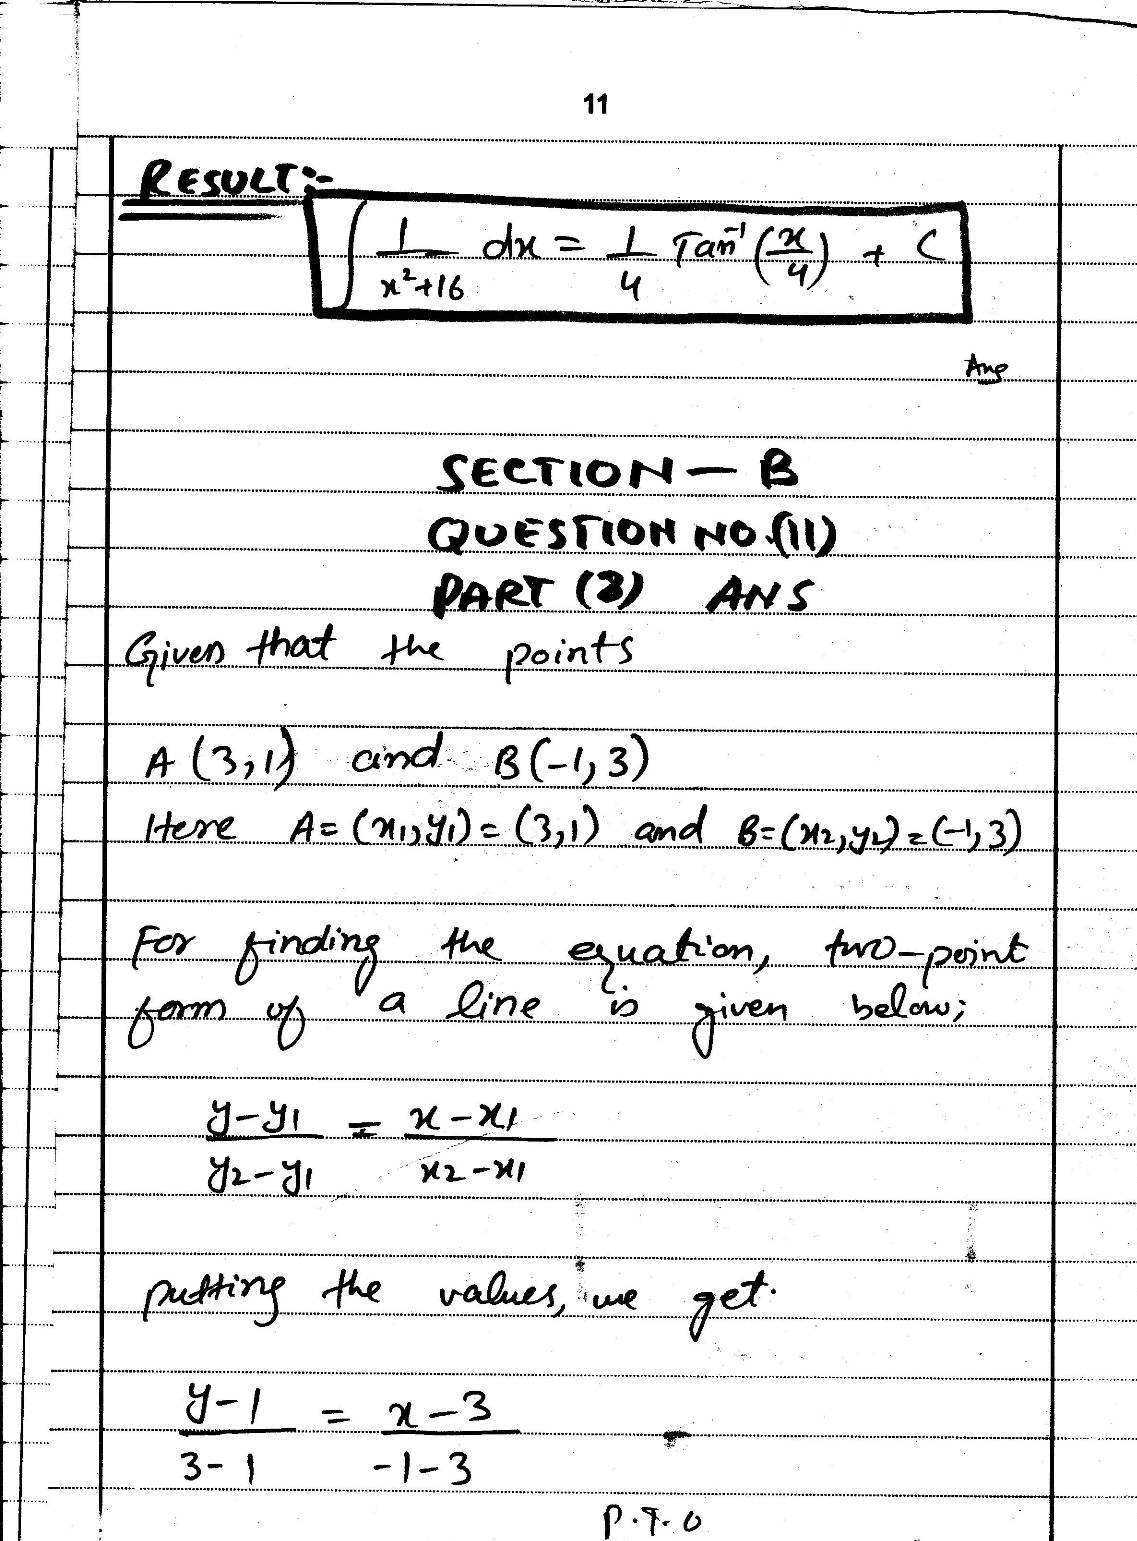 11
RESULT:-
∫ 1/(x²+16) dx = 1/4 Tan⁻¹ (x/4) + C
Ans
SECTION – B
QUESTION NO.(11)
PART (3) ANS
Given that the points
A (3,1) and B(-1,3)
Here A= (x₁,y₁) = (3,1) and B=(x₂,y₂)=(-1,3)
For finding the equation, two-point
form of a line is given below;
(y-y₁)/(y₂-y₁) = (x-x₁)/(x₂-x₁)
putting the values, we get.
(y-1)/(3-1) = (x-3)/(-1-3)
P.T.O